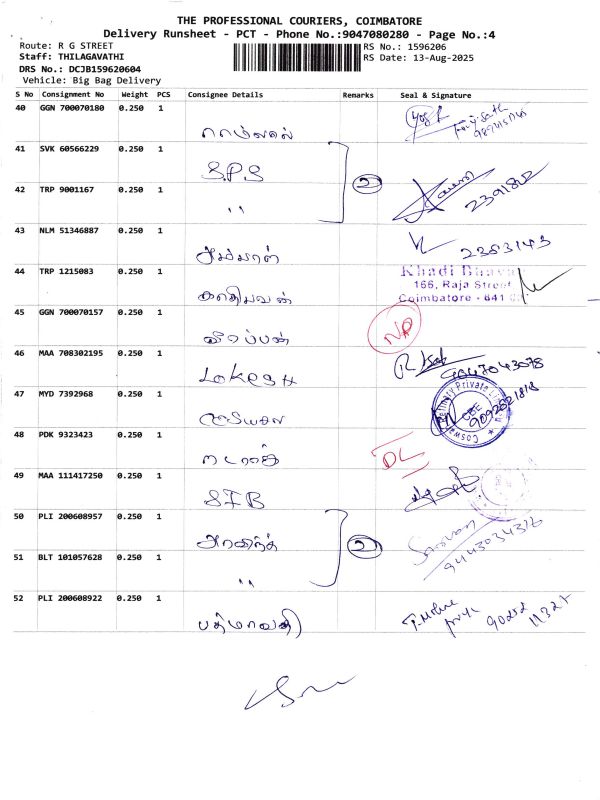 THE PROFESSIONAL COURIERS, COIMBATORE
Delivery Runsheet - PCT - Phone No.:9047080280 - Page No.:4
Route: R G STREET
RS No.: 1596206
Staff: THILAGAVATHI
RS Date: 13-Aug-2025
DRS No.: DCJB159620604
Vehicle: Big Bag Delivery
S No Consignment No Weight PCS Consignee Details Remarks Seal & Signature
40 GGN 700070180 0.250 1
41 SVK 60566229 0.250 1
S.P.S
2
42 TRP 9001167 0.250 1
"
43 NLM 51346887 0.250 1
2383143
44 TRP 1215083 0.250 1
Khadi Bhava
166, Raja Street
Coimbatore - 641
கதிரவன்
45 GGN 700070157 0.250 1
வீரப்பன்
46 MAA 708302195 0.250 1
Lokesh
9047043078
47 MYD 7392968 0.250 1
CBE
9092821818
48 PDK 9323423 0.250 1
DL
நடராஜ்
49 MAA 111417250 0.250 1
SIB
50 PLI 200608957 0.250 1
அரவிந்த்
2
Saravanan
9443034316
51 BLT 101057628 0.250 1
"
52 PLI 200608922 0.250 1
பத்மாவதி
90252
11327